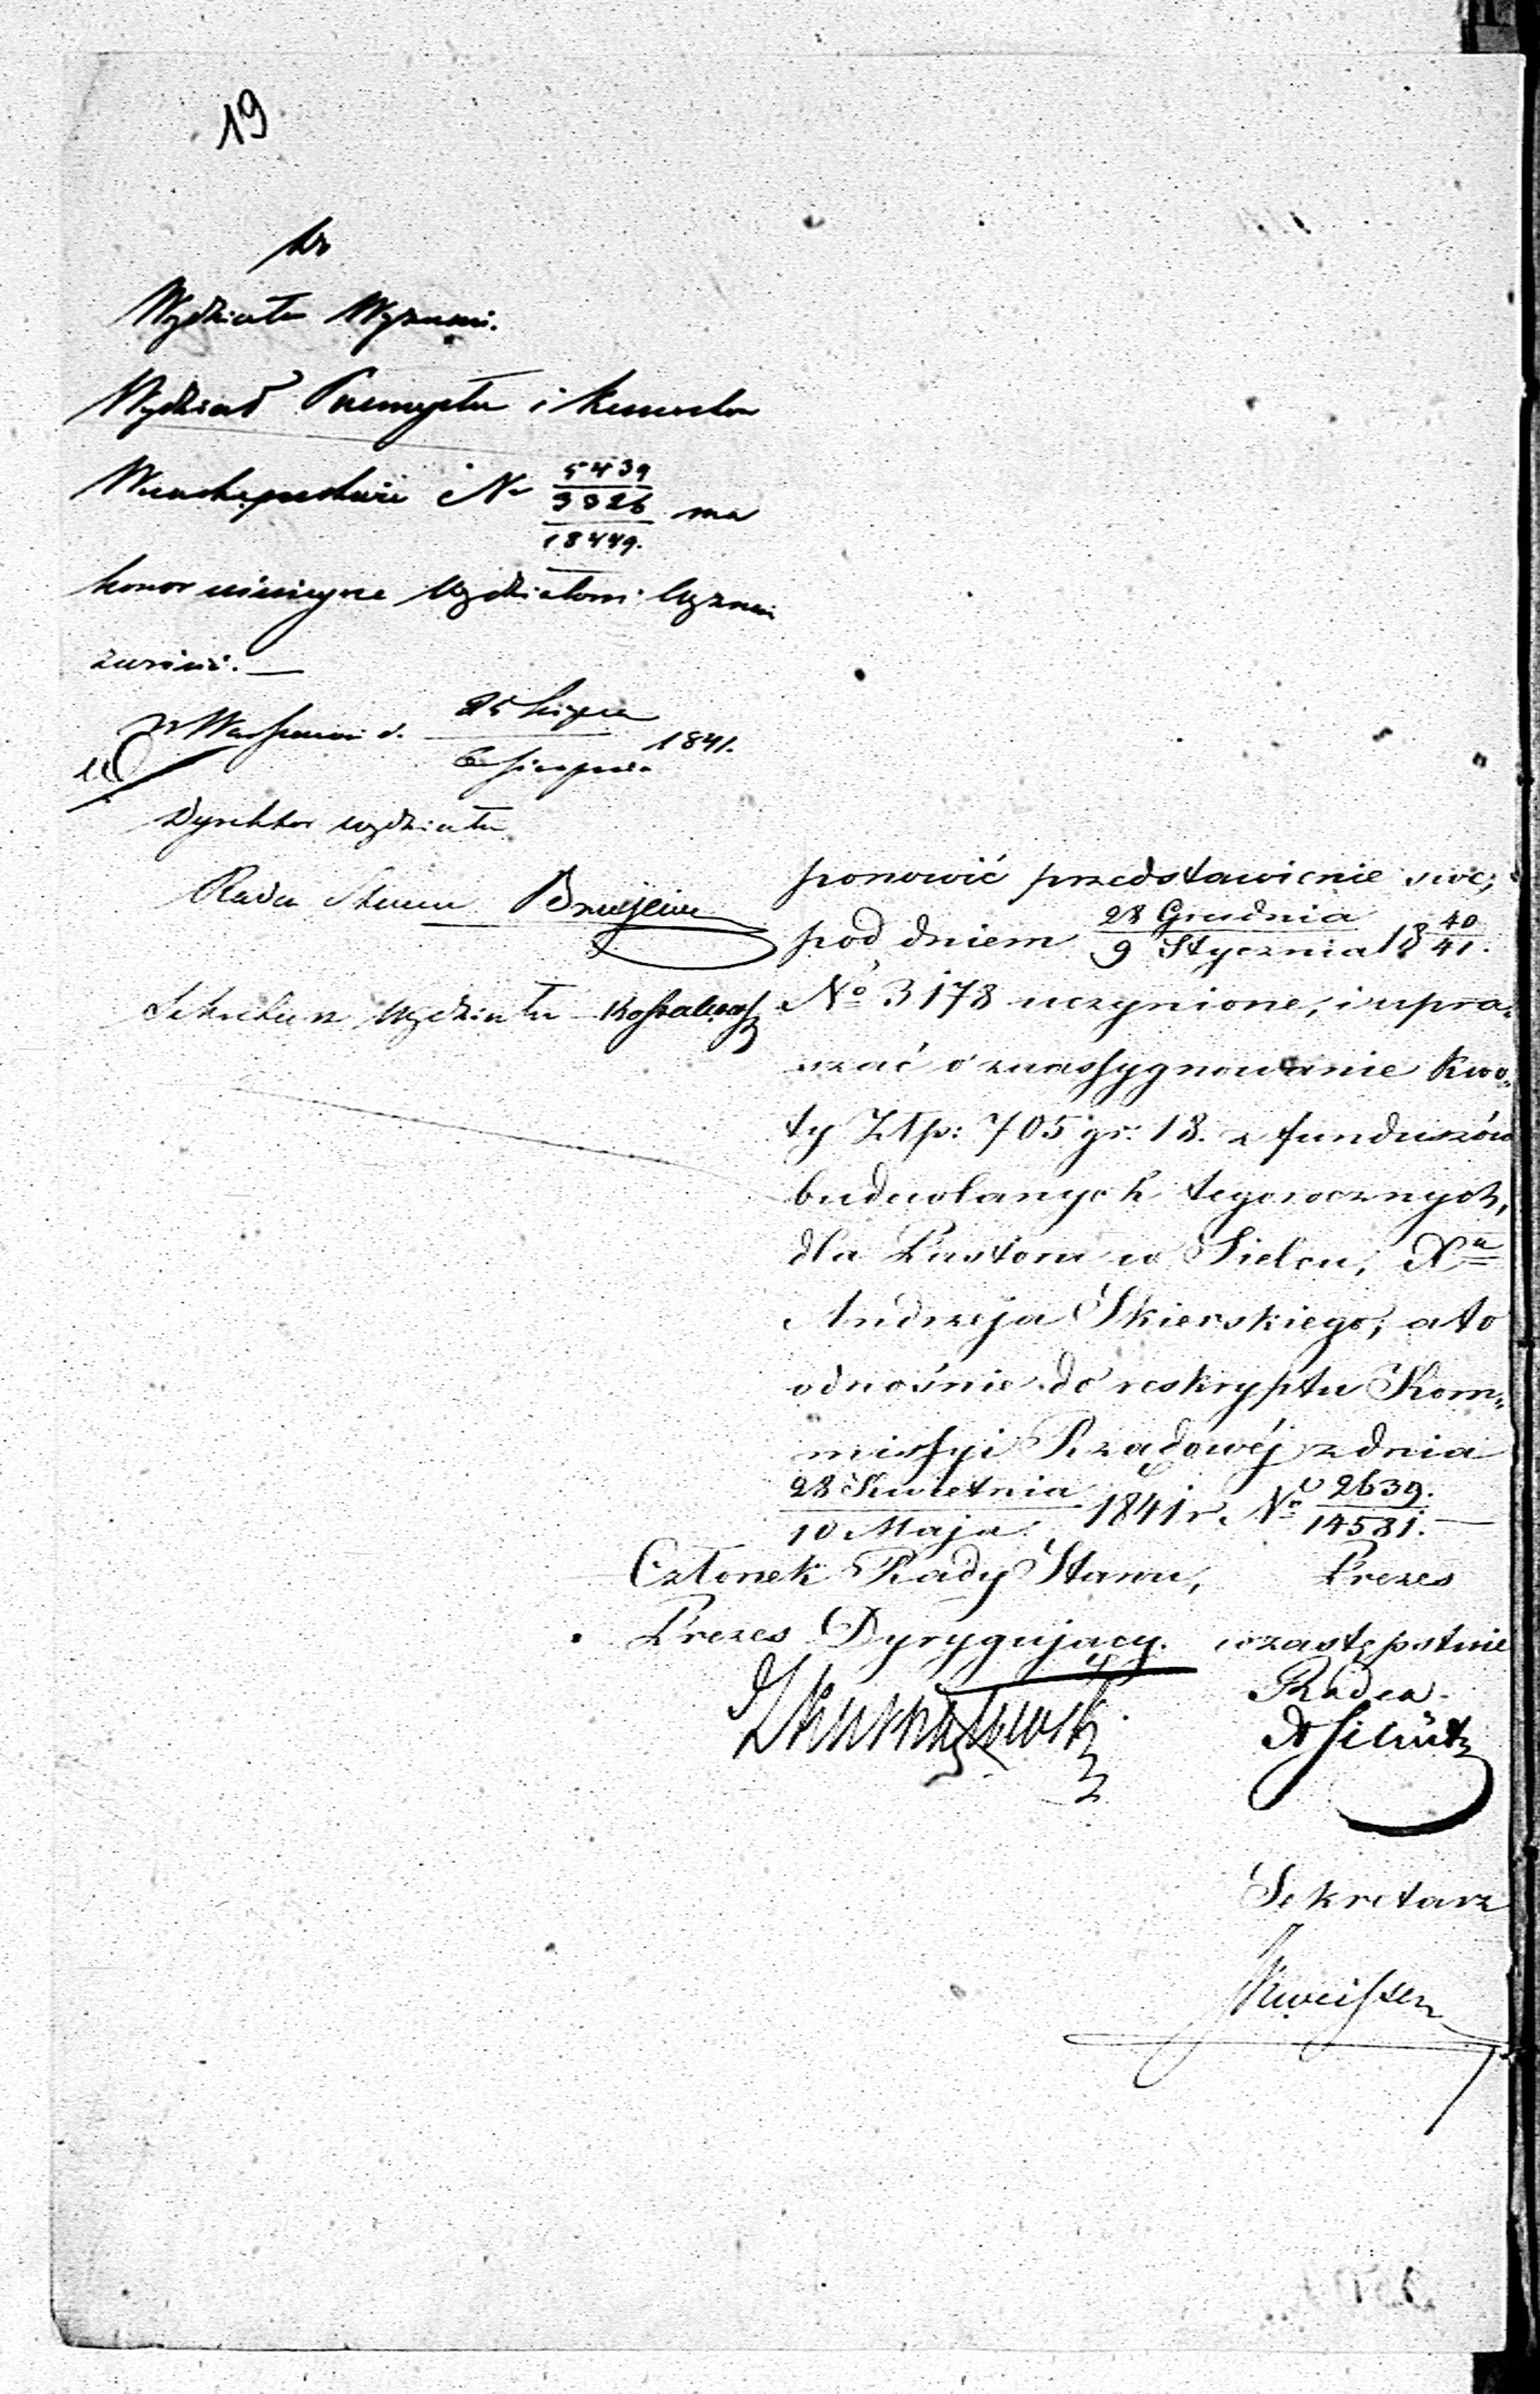 19
do
Wydziału Wyznań.
Wydział Przemysłu i Kunsztów
N° 5439
3326 ma
18449.
honor niniejsze Wydziałowi Wyznań
zwrócić. —
w Warszawie d. 25 Lipca
6 Sierpnia 1841.
Dyrektor Wydziału
Radca Stanu
Sekretarz Wydziału
ponowić przedstawienie swe,
pod dniem 28 Grudnia
9 Stycznia 18 40
41.
N° 3178 uczynione, i upra-
szać o zaassygnowanie kwo-
ty Złp: 705 gr: 18. z funduszów
budowlanych tegorocznych,
dla Pastora w Sielcu, Xa
Andrzeja Skierskiego, a to
odnośnie do reskryptu Kom-
missyi Rządowéj z dnia
28 Kwietnia
10 Maja 1841 r. N° 2639.
14531. —
Członek Rady Stanu, Prezes
Prezes Dyrygujący. w zastępstwie
Radca
Sekretarz